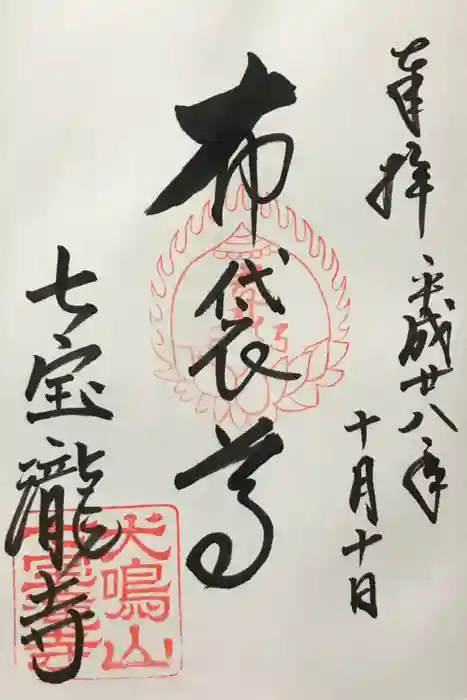 奉拝
平成廿八年
十月十日
布袋尊
七宝瀧寺
犬鳴山
七宝瀧寺